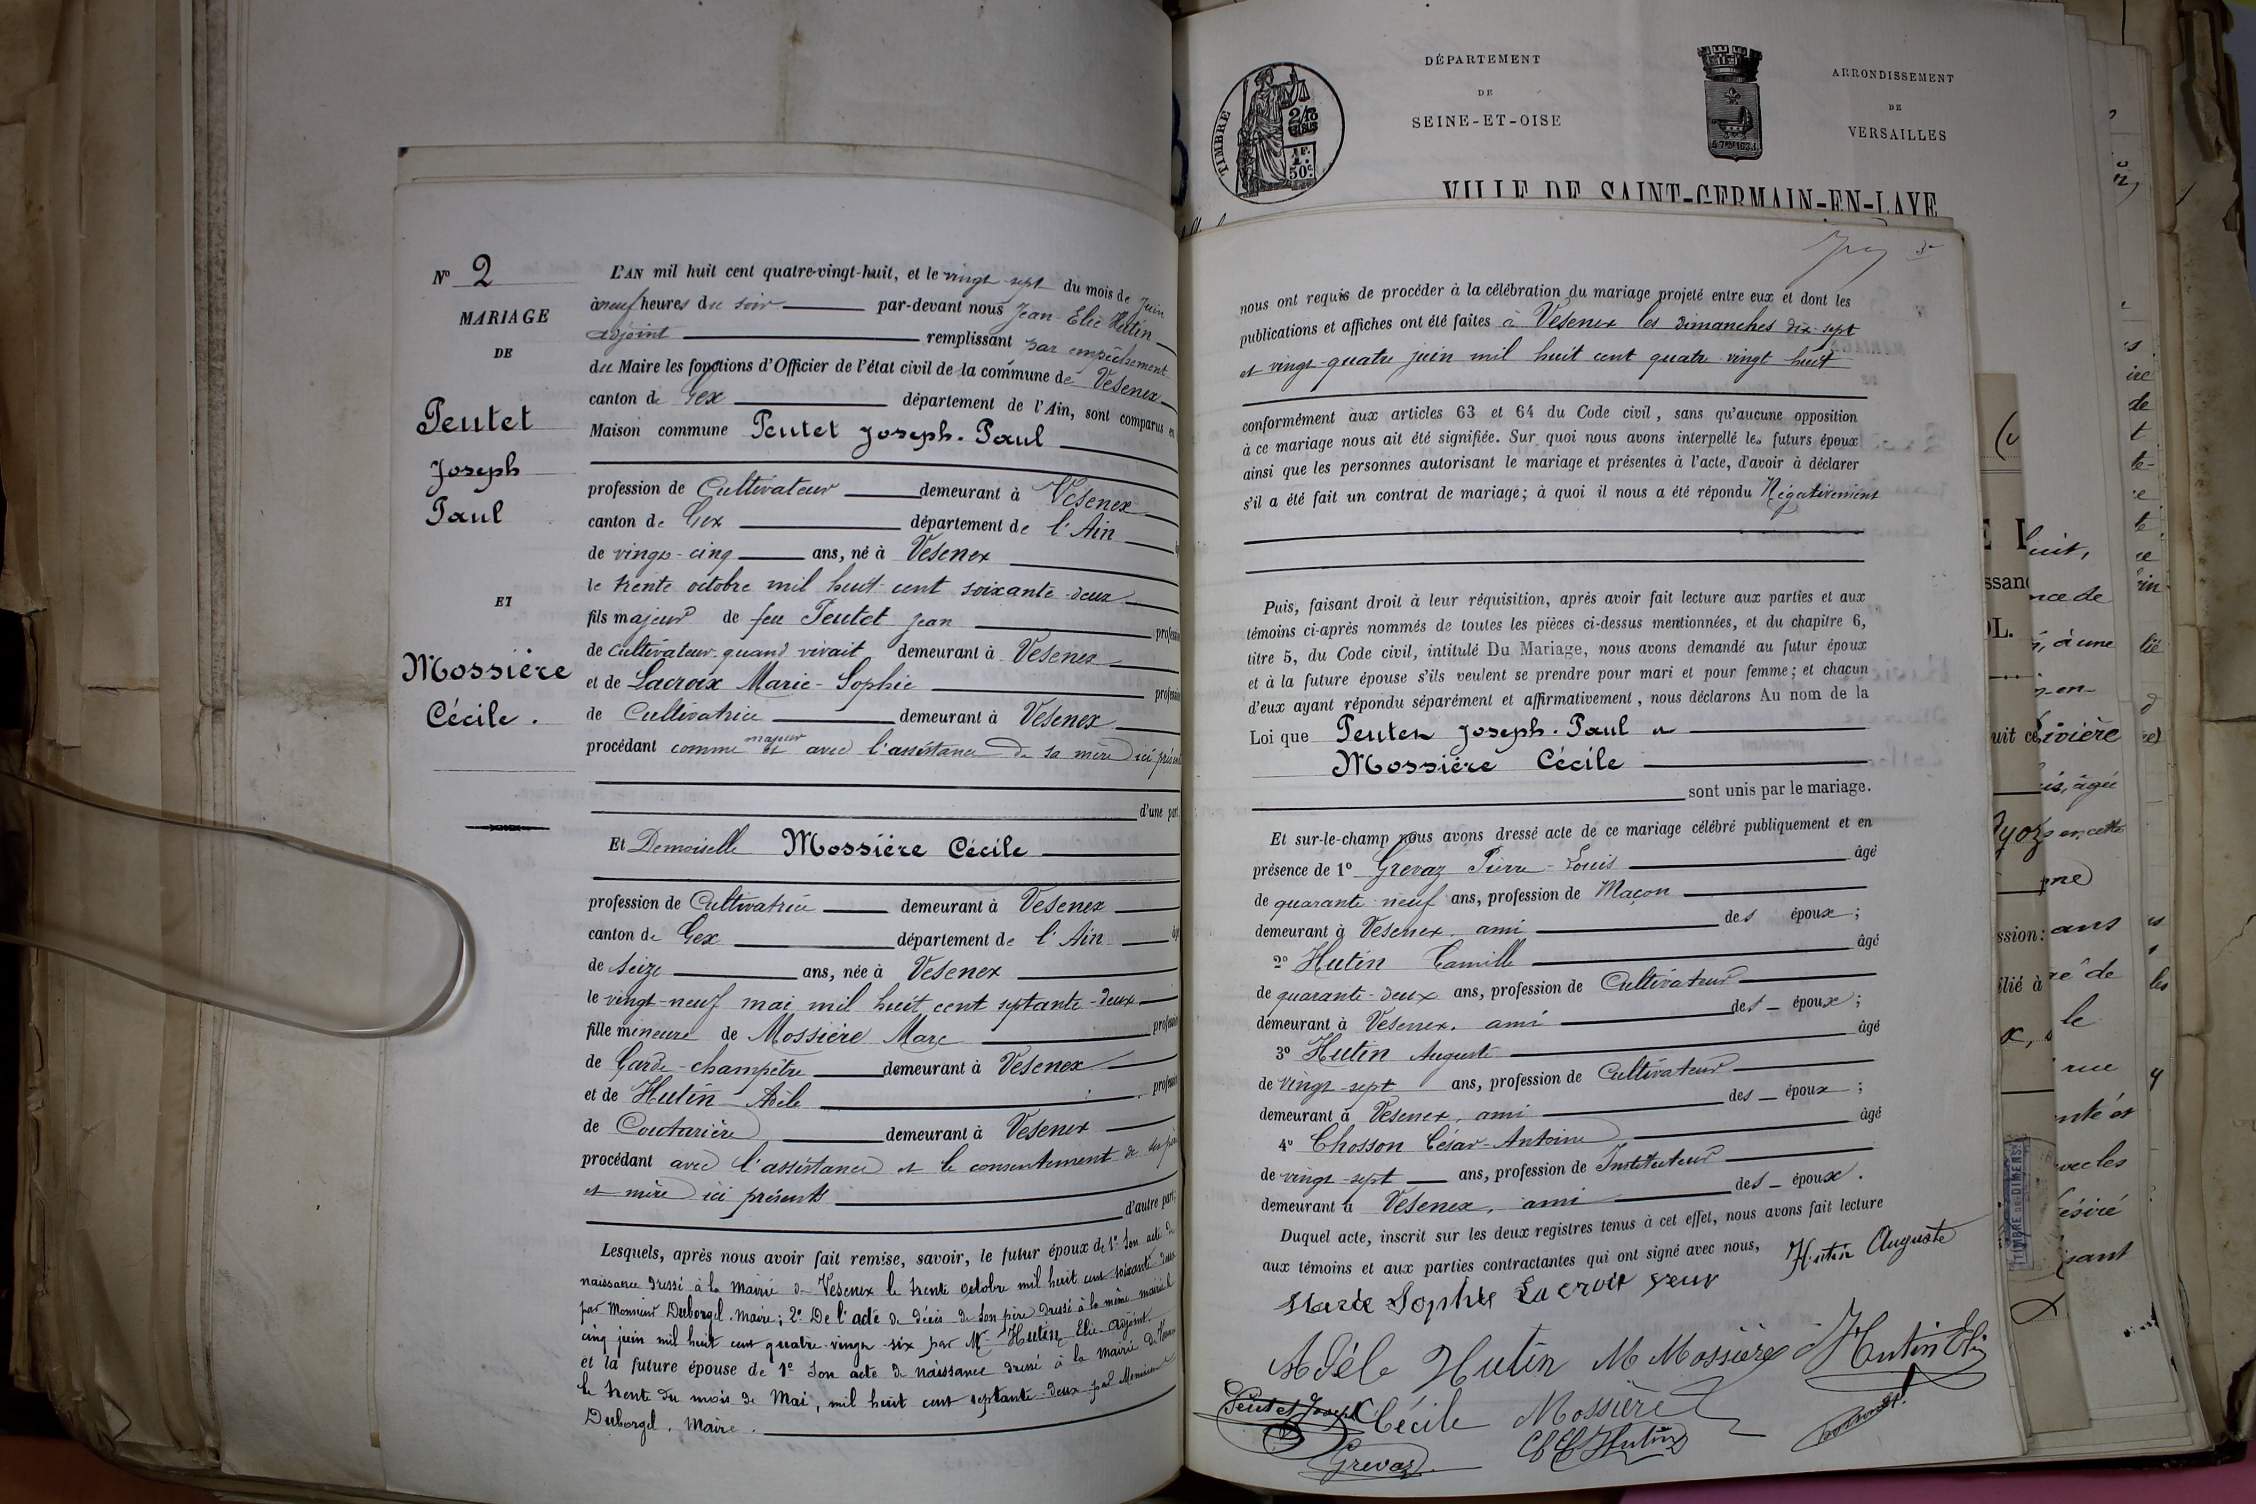 N° 2
MARIAGE
DE
Peutet
Joseph
Paul
ET
Mossière
Cécile.
L'AN mil huit cent quatre-vingt-huit, et le vingt-sept du mois de Juin
à neuf heures du soir par-devant nous Jean-Elie Hutin
adjoint remplissant par empêchement
du Maire les fonctions d'Officier de l'état civil de la commune de Vesenex
canton de Gex département de l'Ain, sont comparus en
Maison commune Peutet Joseph-Paul
profession de Cultivateur demeurant à Vesenex
canton de Gex département de l'Ain
de vingt-cinq ans, né à Vesenex
le trente octobre mil huit cent soixante-deux
fils majeur de feu Peutet Jean profession
de cultivateur quand vivait demeurant à Vesenex
et de Lacroix Marie-Sophie profession
de Cultivatrice demeurant à Vesenex
procédant comme majeur avec l'assistance de sa mère ici présente
d'une part.
Et Demoiselle Mossière Cécile
profession de Cultivatrice demeurant à Vesenex
canton de Gex département de l'Ain
de seize ans, née à Vesenex
le vingt-neuf mai mil huit cent septante-deux
fille mineure de Mossière Marc profession
de Garde-champêtre demeurant à Vesenex
et de Hutin Adèle profession
de Couturière demeurant à Vesenex
procédant avec l'assistance et le consentement de ses père
et mère ici présents
d'autre part.
Lesquels, après nous avoir fait remise, savoir, le futur époux de 1° Son acte de
naissance dressé à la Mairie de Vesenex le trente octobre mil huit cent soixante-deux
par Monsieur Duborgel, Maire; 2° De l'acte de décès de son père dressé à la même mairie le
cinq juin mil huit cent quatre-vingt-six par Mr Hutin Elie adjoint.
et la future épouse de 1° Son acte de naissance dressé à la Mairie de Vesenex
le trente du mois de Mai, mil huit cent septante-deux par Monsieur
Duborgel, Maire.
DÉPARTEMENT
DE
SEINE-ET-OISE
TIMBRE
1 F.
50c
ARRONDISSEMENT
DE
VERSAILLES
VILLE DE SAINT-GERMAIN-EN-LAYE
nous ont requis de procéder à la célébration du mariage projeté entre eux et dont les
publications et affiches ont été faites à Vesenex les dimanches dix-sept
et vingt-quatre juin mil huit cent quatre vingt huit
conformément aux articles 63 et 64 du Code civil, sans qu'aucune opposition
à ce mariage nous ait été signifiée. Sur quoi nous avons interpellé les futurs époux
ainsi que les personnes autorisant le mariage et présentes à l'acte, d'avoir à déclarer
s'il a été fait un contrat de mariage; à quoi il nous a été répondu Négativement
Puis, faisant droit à leur réquisition, après avoir fait lecture aux parties et aux
témoins ci-après nommés de toutes les pièces ci-dessus mentionnées, et du chapitre 6,
titre 5, du Code civil, intitulé Du Mariage, nous avons demandé au futur époux
et à la future épouse s'ils veulent se prendre pour mari et pour femme; et chacun
d'eux ayant répondu séparément et affirmativement, nous déclarons Au nom de la
Loi que Peutet Joseph-Paul et
Mossière Cécile
sont unis par le mariage.
Et sur-le-champ nous avons dressé acte de ce mariage célébré publiquement et en
présence de 1° Grevaz Pierre-Louis âgé
de quarante neuf ans, profession de Maçon
demeurant à Vesenex, ami des époux;
2° Hutin Camille âgé
de quarante-deux ans, profession de Cultivateur
demeurant à Vesenex, ami des époux;
3° Hutin Auguste âgé
de vingt-sept ans, profession de Cultivateur
demeurant à Vesenex, ami des époux;
4° Chosson César-Antoine âgé
de vingt-sept ans, profession de Instituteur
demeurant à Vesenex, ami des époux.
Duquel acte, inscrit sur les deux registres tenus à cet effet, nous avons fait lecture
aux témoins et aux parties contractantes qui ont signé avec nous, Hutin Auguste
Marie Sophie Lacroix
Adèle Hutin M Mossière Hutin Elie
Peutet Joseph Cécile Mossière
Grevaz Hutin
TIMBRE DE DIMENS